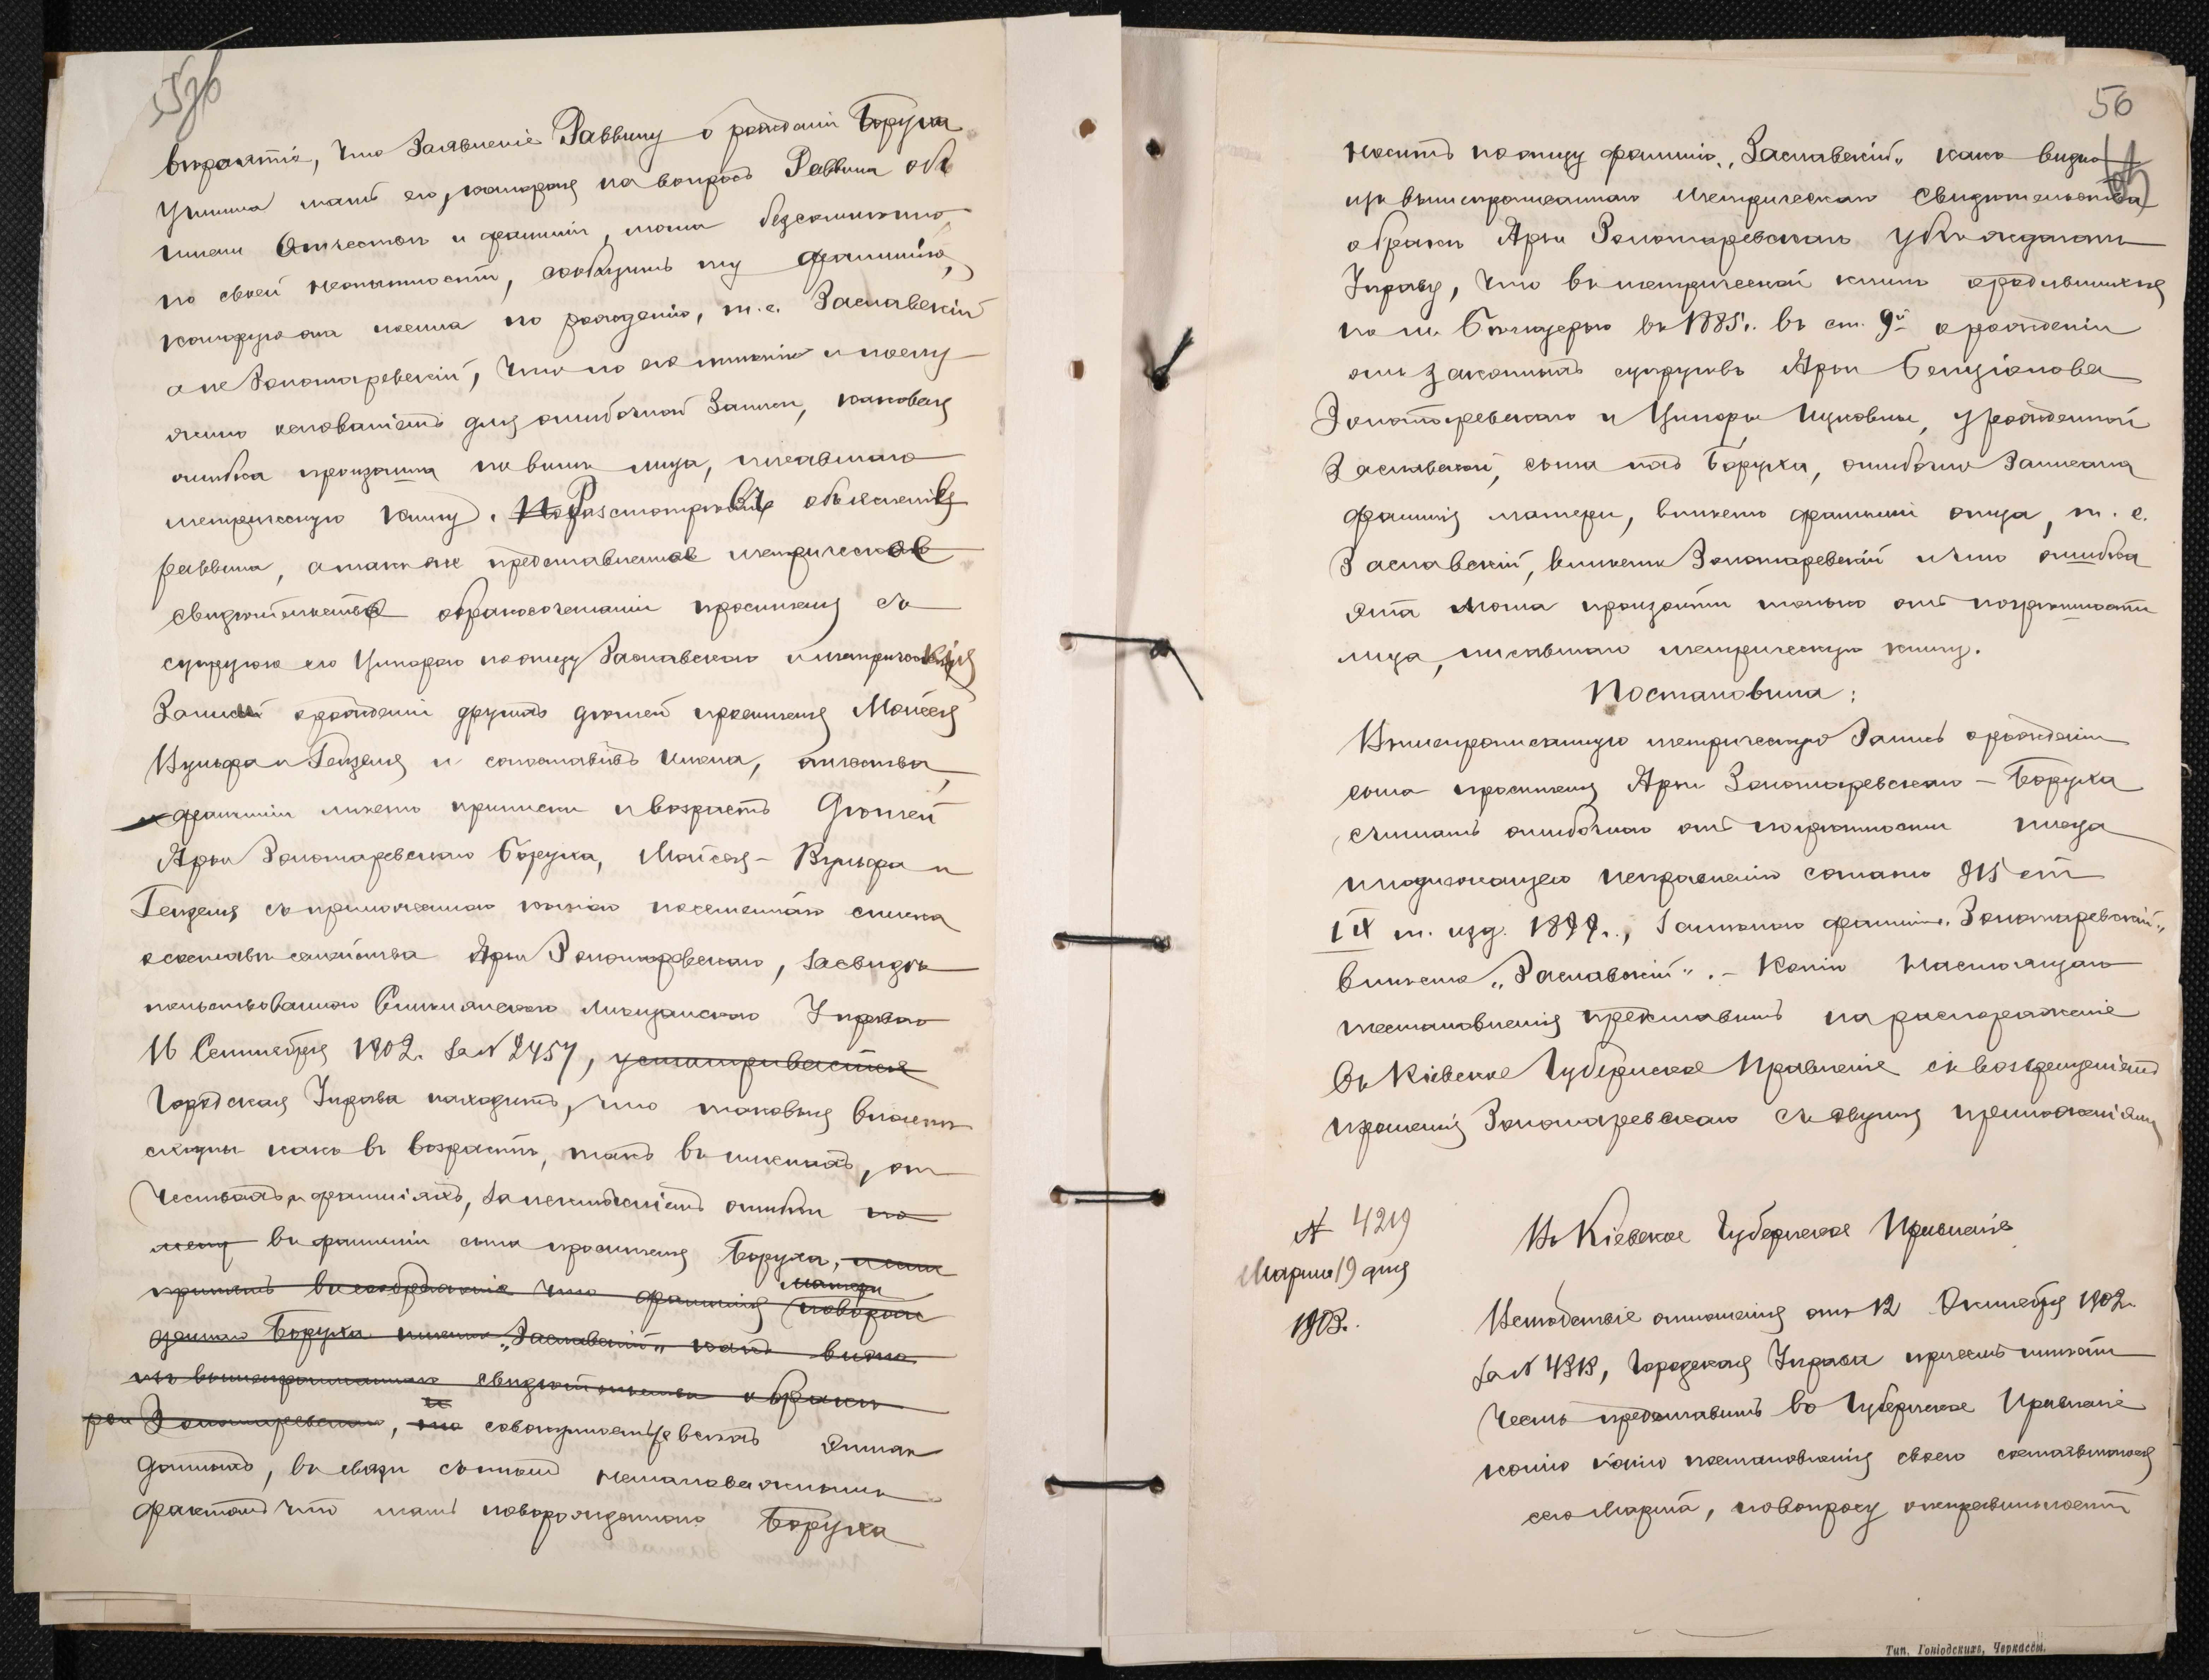 вѣроятіе, что Заявленіе Раввину о рожденіи Боруха
Учинила мать его, которая на вопросъ Раввина объ
имени Отчествѣ и фамиліи, могла безсомнѣнно,
по своей неопытности, сообщить ту фамилію,
которую она носила по рожденію, т. е. Заславскій
а не Золотаревскій, что по его мнѣнію и послу
жило основаніемъ для ошибочной Записи, каковая
ошибка произошла по винѣ лица, писавшаго
метрическую книгу. По Разсмотрѣвъ объясненія
раввина, а также представленное метрическое
свидѣтельство о бракосочетаніи просителя съ
супругою его Ципорою по отцу Заславскою и метрическія
Записи о рожденіи другихъ дѣтей просителя Мойсея
Вульфа и Генделя и сопоставивъ имена, отчества,
и фамиліи мѣсто приписки и возрастъ Дѣтей
Арьи Золотаревскаго Боруха, Мойсея-Вульфа и
Генделя съ приложенною копіею посемейнаго списка
о составѣ семейства Арьи Золотаревскаго, засвидѣ
тельствованною Смѣлянскою Мѣщанскою Управою
16 Сентября 1902 г. за № 2457, усматривается
Городская Управа находитъ, что таковыя вполнѣ
сходны какъ въ возрастѣ, такъ въ именахъ, от
чествахъ и фамиліяхъ, за исключеніемъ ошибки по
лагу въ фамиліи сына просителя Боруха, если
принять въ соображеніе что фамилія матери новорож
деннаго Боруха имѣетъ „Заславскій" какъ видно
изъ вышепрописаннаго свидѣтельства о бракѣ
рьи Золотаревскаго, то и совокупность всѣхъ этихъ
данныхъ, въ связи съ тѣмъ немаловажнымъ
фактомъ что мать новорожденнаго Боруха
56
носитъ по отцу фамилію „Заславскій" какъ видно
изъ вышепрописаннаго метрическаго свидѣтельства
о бракѣ Арьи Золотаревскаго убѣждаютъ
Управу, что въ метрической книгѣ о родившихся
по м. Бѣлозерью въ 1885 г. въ ст. 9й о рожденіи
отъ законныхъ супруговъ Арьи Бенціонова
Золотаревскаго и Ципоры Ицковны, урожденной
Заславской, сына ихъ Боруха, ошибочно Записана
фамилія матери, вмѣсто фамиліи отца, т. е.
Заславскій, вмѣсто Золотаревскій и что ошибка
эта могла произойти только отъ погрѣшности
лица, писавшаго метрическую книгу.
Постановила:
Вышепрописанную метрическую Запись о рожденіи
сына просителя Арьи Золотаревскаго - Боруха
считать ошибочною отъ погрѣшности писца
и подлежащею исправленію согласно 915 ст
IX т. изд. 1899 г., Записью фамиліи „Золотаревскій"
вмѣсто „Заславскій". - Копію настоящаго
постановленія представить на распоряженіе
Въ Кіевское Губернское Правленіе съ возвращеніемъ
прошенія Золотаревскаго съ двумя приложеніями
№ 4219
Марта 19 дня
1903 г.
Въ Кіевское Губернское Правленіе
Вслѣдствіе отношенія отъ 12 Октября 1902 г.
за № 4313, Городская Управа при семъ имѣетъ
честь представить во Губернское Правленіе
копію копію постановленія своего состоявшагося
сего Марта, по вопросу о неправильности
Тип. Гоніодскихъ, Черкассы.